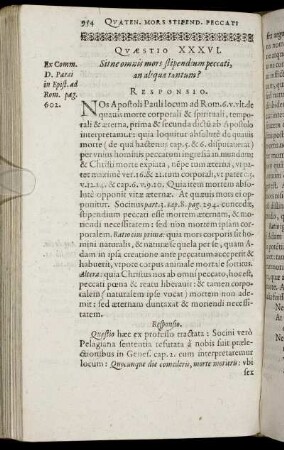 954 QUATEN. MORS STIPEND. PECCATI
QUÆSTIO XXXVI.
Sitne omnis mors stipendium peccati,
an aliqua tantum?
RESPONSIO.
Ex Comm.
D. Paræi
in Epist. ad
Rom. pag.
602.
NOs Apostoli Pauli locum ad Rom. 6. v. ult. de
quavis morte corporali & spirituali, temporali
& æterna, prima & secunda dicta ab Apostolo
interpretamur: quia loquitur absolute de quavis
morte (de qua hactenus cap. 5. & 6. disputaverat)
per unius hominis peccatum ingressa in mundum;
& Christi morte expiata, nempe cum æterna, vt patet
maxime ex vers. 16. & 21. tum corporali, vt patet
v. 12. 14. & cap. 6. v. 9. 10. Quia item mortem absolute
opponit vitæ æternæ. At quævis mors ei opponitur.
Socinus part. 3. cap. 8. pag. 294. concedit,
stipendium peccati esse mortem æternam, & moriendi
necessitatem: sed non mortem ipsam corporalem.
Ratio eius prima: quia mors corporis sit homini
naturalis, & naturæ sequela per se, quam Adam
in ipsa creatione ante peccatum acceperit &
habuerit, vtpote corpus animale habens & sortitus.
Altera: quia Christus nos ab omni peccato, hoc est,
peccati pœna & reatu liberavit: & tamen corporalem
(naturalem ipse vocat) mortem non ademit:
sed æternam duntaxat & moriendi necessitatem.
Responsio.
Quæstio hæc ex professo tractata: Socini vero
Pelagiana sententia refutata à nobis fuit prælectionibus
in Genes. cap. 2. cum interpretaremur
locum: Quacunque die comederis, morte morieris: vbi
sex